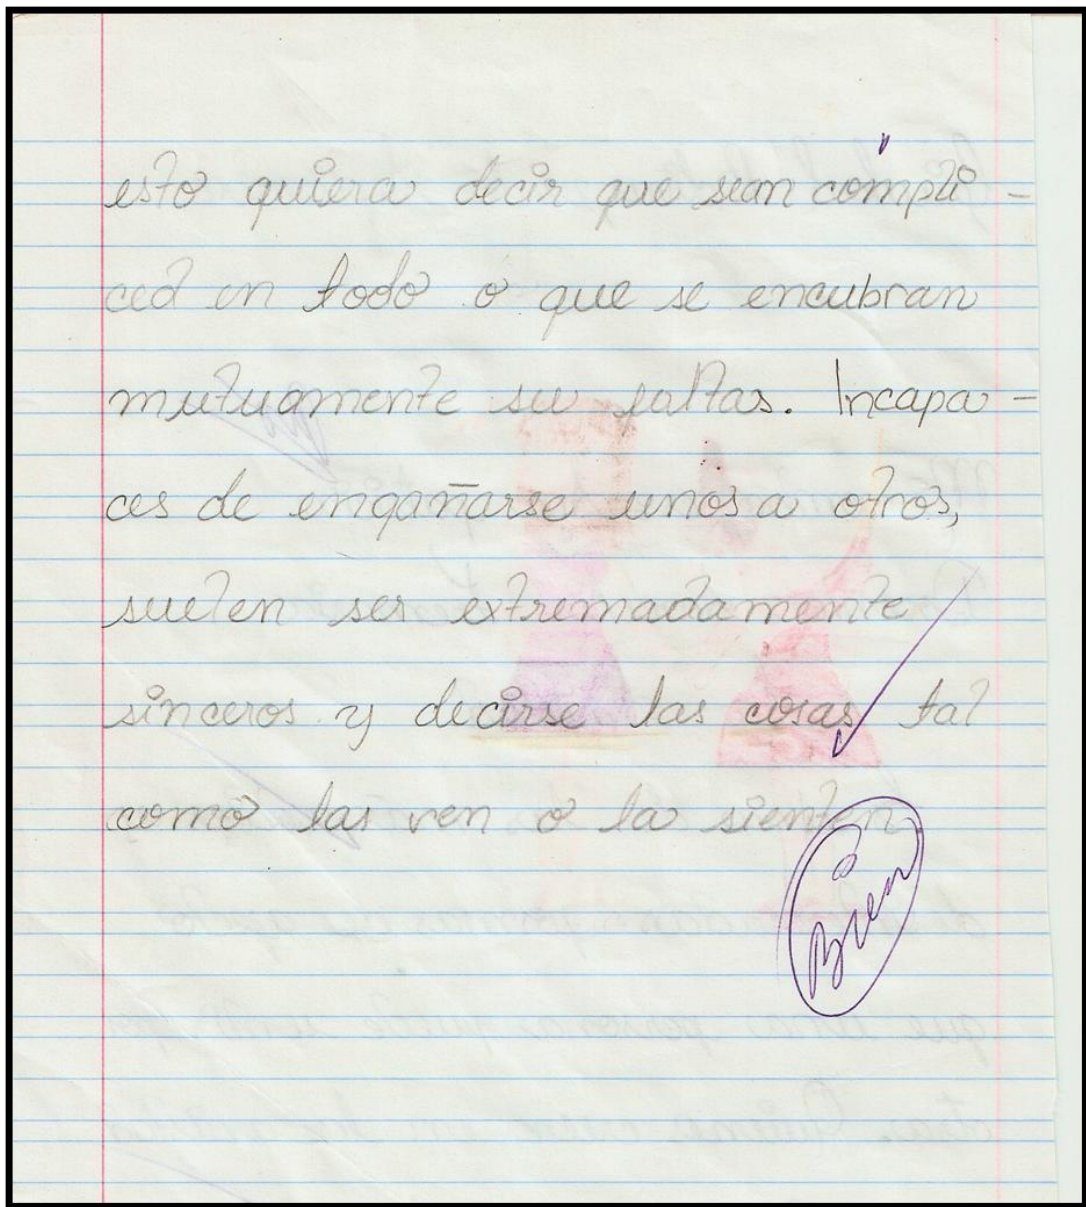 esto quiera decir que sean cómpli-
ces en todo o que se encubran
mutuamente su faltas. Incapa-
ces de engañarse unos a otros,
suelen ser extremadamente
sinceros y decirse las cosas tal
como las ven o la sienten.
Bien